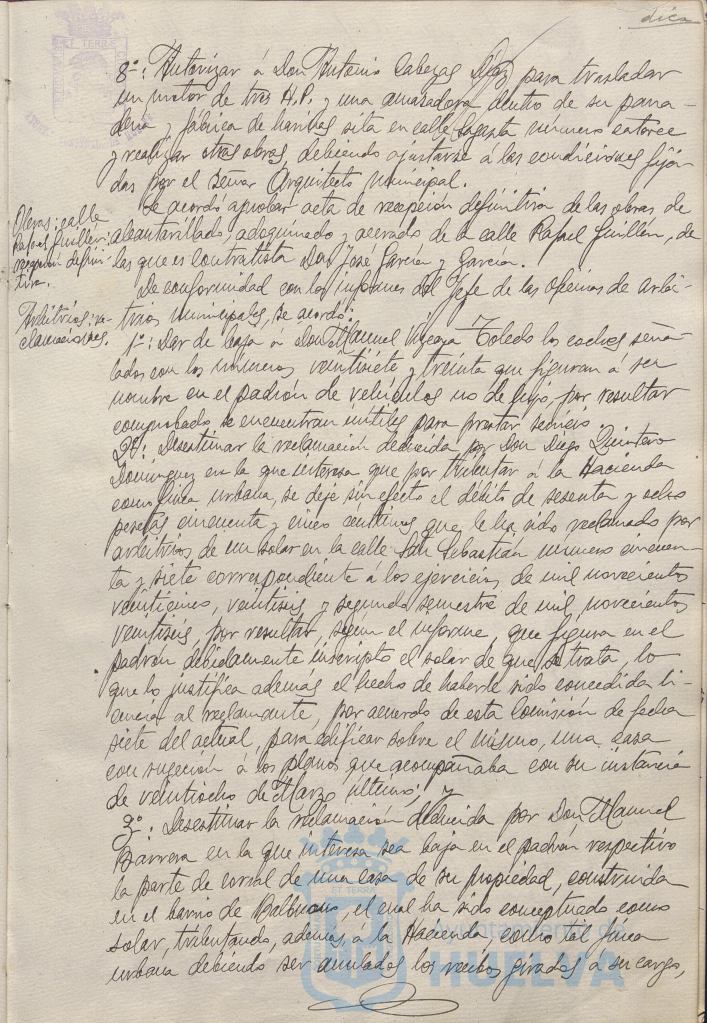 diez
8º: Autorizar á Don Antonio Cabezas Díaz para trasladar
un motor de tres H.P. y una amasadora dentro de su pana-
dería y fábrica de harinas sita en calle Sagasta número catorce
y realizar otras obras, debiendo ajustarse á las condiciones fija-
das por el señor Arquitecto Municipal.
Obras; calle
Rafael Guillén:
recepción defini-
tiva.
Se acordó aprobar acta de recepción definitiva de las obras de
alcantarillado, adoquinado y acerado de la calle Rafael Guillén, de
las que es contratista Don José García y García.
Arbitrios: re-
clamaciones.
De conformidad con los informes del Jefe de las oficinas de arbi-
trios municipales, se acordó:
1º: Dar de baja á Don Manuel Vizcaya Toledo los coches seña-
lados con los números veintisiete y treinta que figuran á su
nombre en el padrón de vehículos no de lujo, por resultar
comprobado se encuentran inútiles para prestar servicio.
2º: Desestimar la reclamación deducida por Don Diego Quintero
Domínguez en la que interesa que por tributar á la Hacienda
como finca urbana, se deje sin efecto el débito de sesenta y ocho
pesetas cincuenta y cinco céntimos que le ha sido reclamado por
arbitrios de un solar en la calle San Sebastián número cincuen-
ta y siete correspondiente á los ejercicios de mil novecientos
veinticinco, veintiséis y segundo semestre de mil novecientos
veintiséis, por resultar, según el informe, que figura en el
padrón debidamente inscripto el solar de que se trata, lo
que lo justifica además el hecho de haberle sido concedida li-
cencia al reclamante, por acuerdo de esta Comisión de fecha
siete del actual, para edificar sobre el mismo, una casa
con sugeción á los planos que acompañaba con su instancia
de veintiocho de Marzo último; y
3º: Desestimar la reclamación deducida por Don Manuel
Barrera en la que interesa sea baja en el padrón respectivo
la parte de corral de una casa de su propiedad, construida
en el barrio de Balbueno, el cual ha sido conceptuado como
solar, tributando, además, á la Hacienda, como tal finca
urbana debiendo ser anulados los recibos girados á su cargo,
Ayuntamiento de
HUELVA